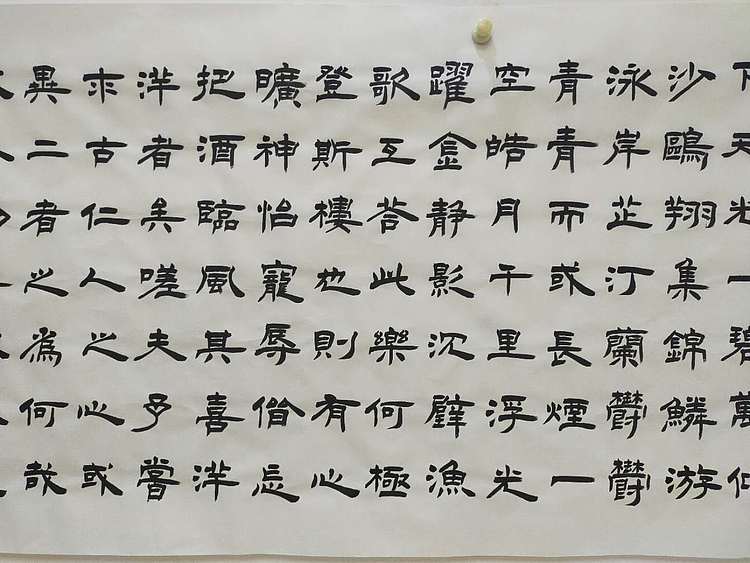 下天光一碧萬頃
沙鷗翔集錦鱗游
泳岸芷汀蘭鬱鬱
青青而或長煙一
空皓月千里浮光
躍金靜影沈璧漁
歌互荅此樂何極
登斯樓也則有心
曠神怡寵辱偕忘
把酒臨風其喜洋
洋者矣嗟夫予嘗
求古仁人之心或
異二者之為何哉